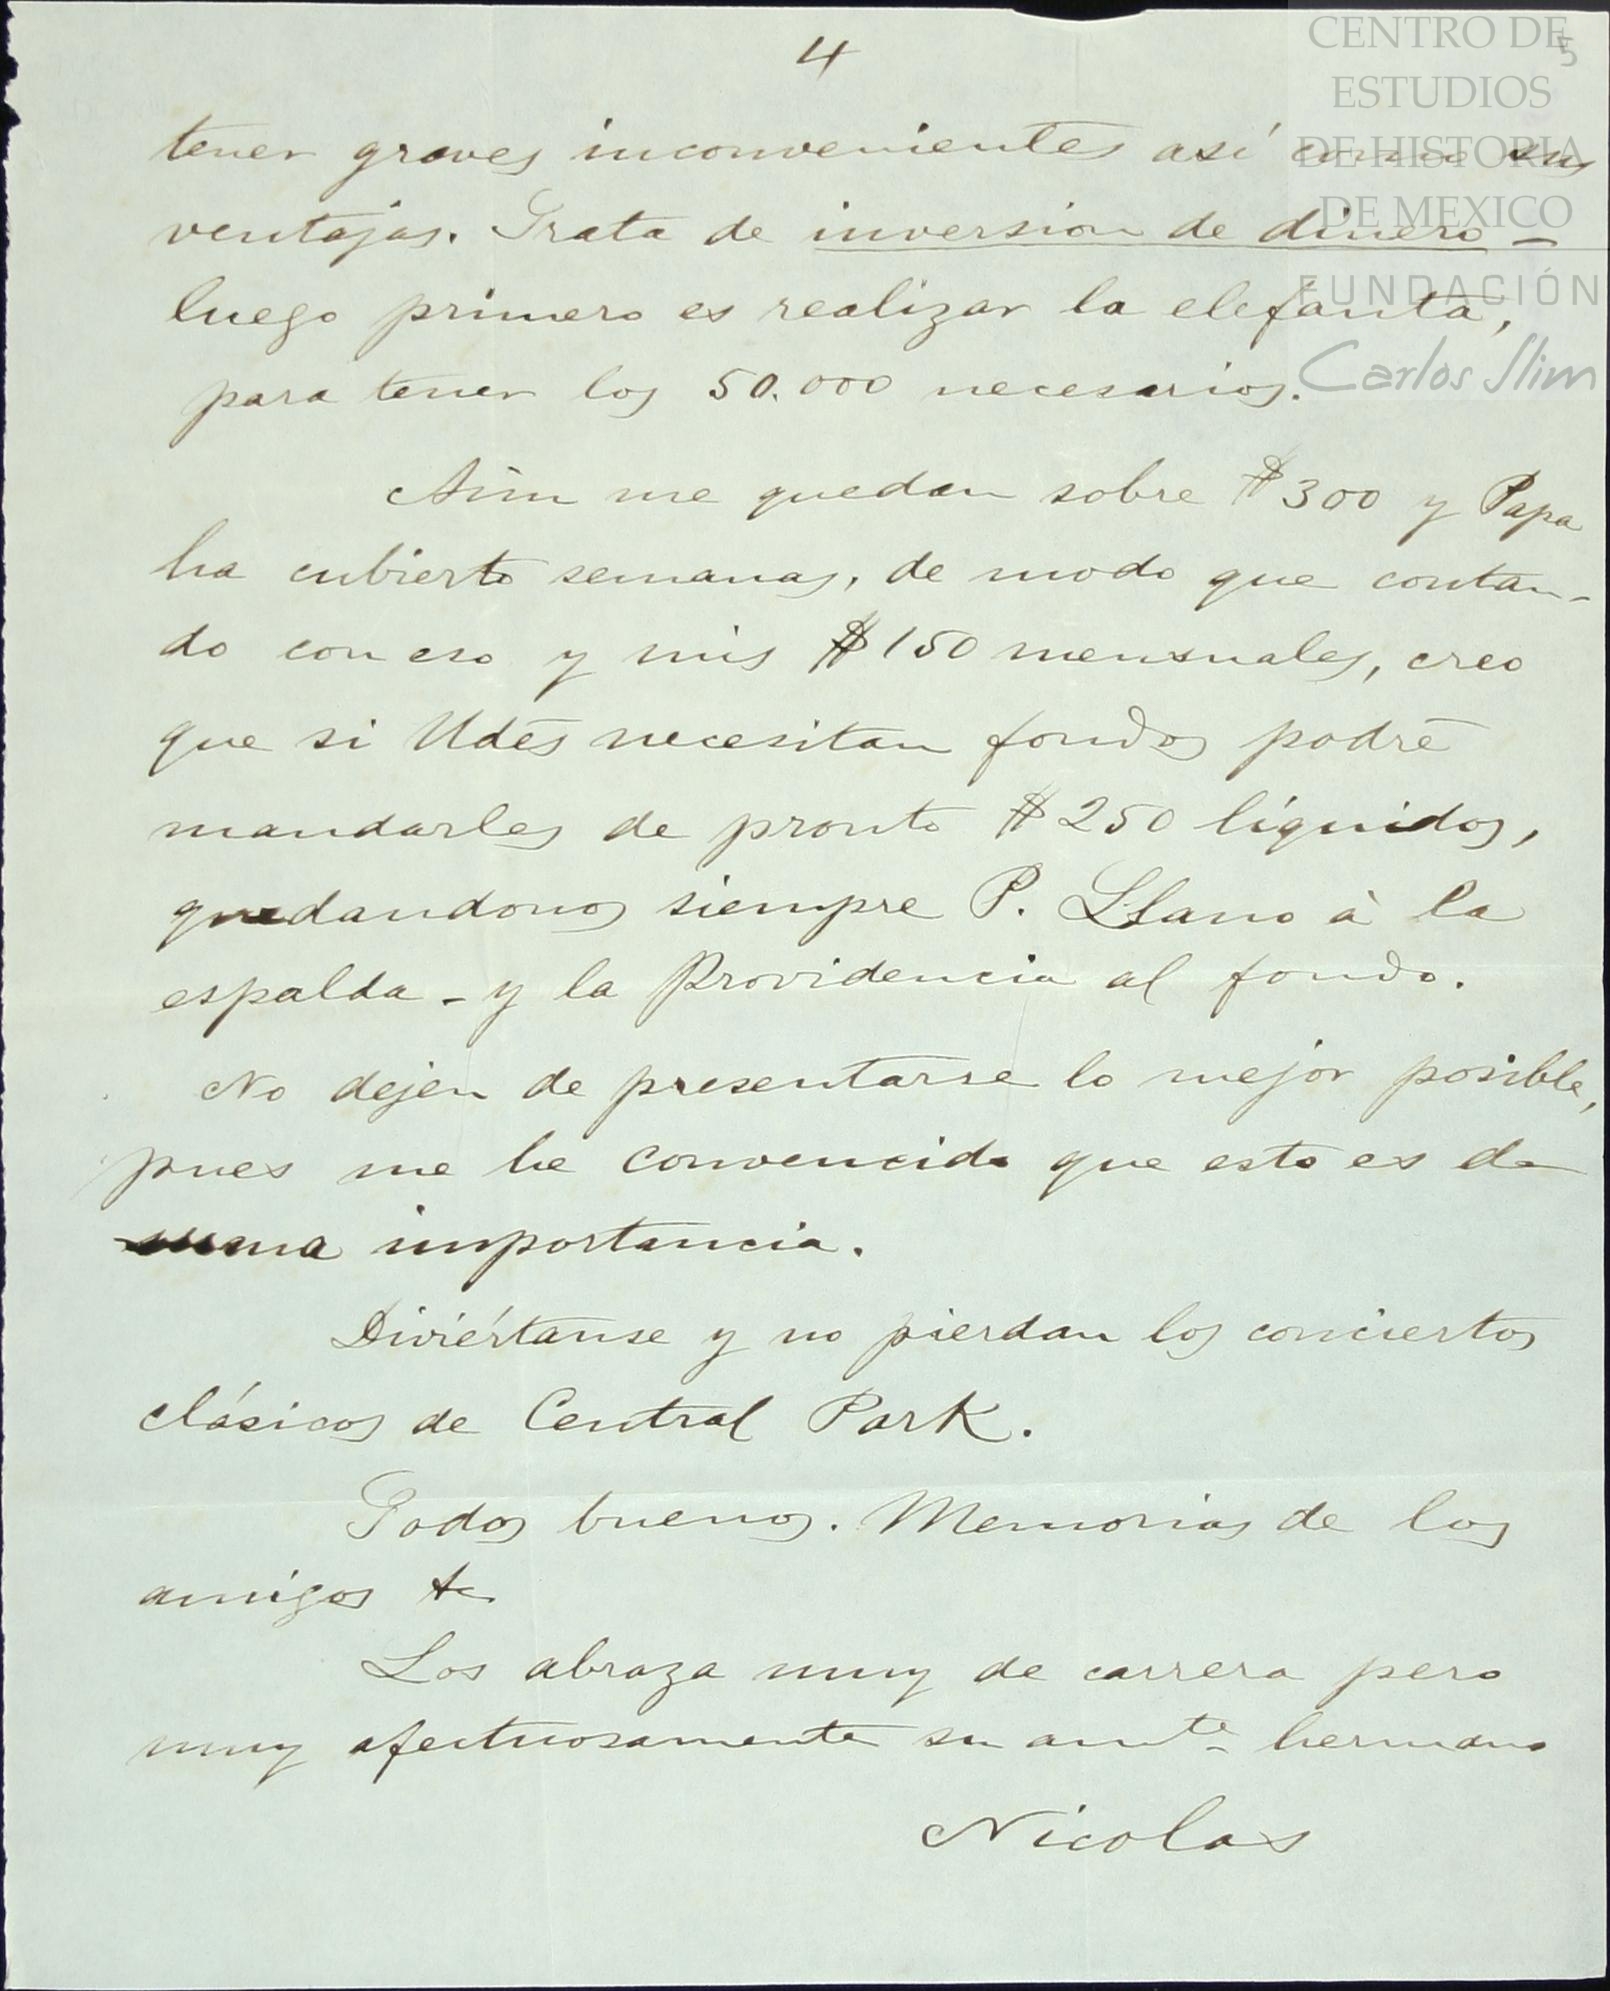 4
5
CENTRO DE
ESTUDIOS
DE HISTORIA
DE MEXICO
FUNDACIÓN
Carlos Slim
tener graves inconvenientes así como sus
ventajas. Trata de inversion de dinero –
luego primero es realizar la elefanta,
para tener los 50.000 necesarios.
Aún me quedan sobre $300 y Papa
ha cubierto semanas, de modo que contan-
do con eso y mis $150 mensuales, creo
que si Udes necesitan fondos podré
mandarles de pronto $250 líquidos,
quedandonos siempre P. Llano à la
espalda – y la Providencia al fondo.
No dejen de presentarse lo mejor posible,
pues me he convencido que esto es de
suma importancia.
Diviértanse y no pierdan los conciertos
clásicos de Central Park.
Todos buenos. Memorias de los
amigos &c
Los abraza muy de carrera pero
muy afectuosamente su amte hermano
Nicolas